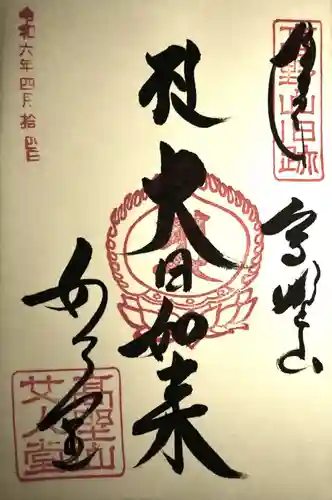 奉拝
高野山旧跡
高野山
大日如来
女人堂
高野山女人堂
令和六年四月拾